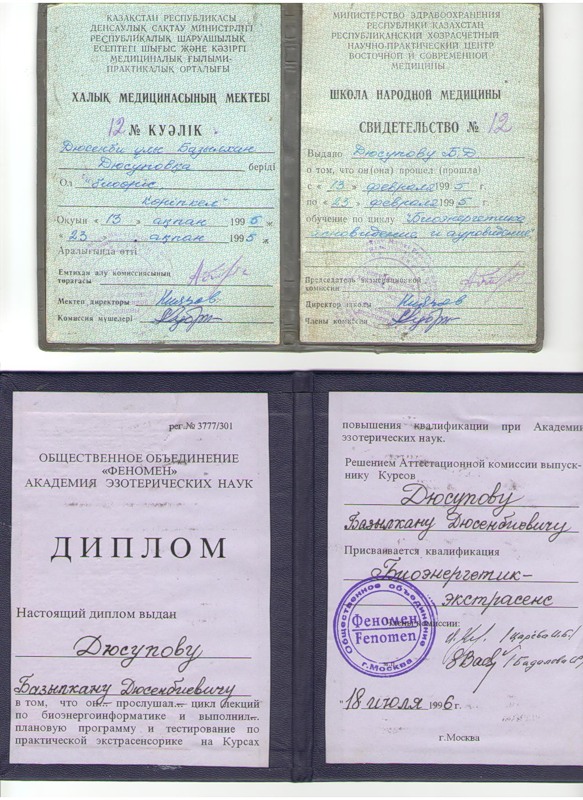 ҚАЗАҚСТАН РЕСПУБЛИКАСЫ
ДЕНСАУЛЫҚ САҚТАУ МИНИСТРЛІГІ
РЕСПУБЛИКАЛЫҚ ШАРУАШЫЛЫҚ
ЕСЕПТЕГІ ШЫҒЫС ЖӘНЕ КӘЗІРГІ
МЕДИЦИНАЛЫҚ ҒЫЛЫМИ-
ПРАКТИКАЛЫҚ ОРТАЛЫҒЫ
ХАЛЫҚ МЕДИЦИНАСЫНЫҢ МЕКТЕБІ
12 № КУӘЛІК
Дюсенби улы Базылхан
Дюсуповқа берілді
Ол
Көріпкел"
Оқуын « 13 » ақпан 1995 ж
« 23 » ақпан 1995 ж
Аралығында өтті
Емтихан алу комиссиясының
төрағасы
Мектеп директоры
Комиссия мүшелері
МИНИСТЕРСТВО ЗДРАВООХРАНЕНИЯ
РЕСПУБЛИКИ КАЗАХСТАН
РЕСПУБЛИКАНСКИЙ ХОЗРАСЧЕТНЫЙ
НАУЧНО-ПРАКТИЧЕСКИЙ ЦЕНТР
ВОСТОЧНОЙ И СОВРЕМЕННОЙ
МЕДИЦИНЫ
ШКОЛА НАРОДНОЙ МЕДИЦИНЫ
СВИДЕТЕЛЬСТВО № 12
Выдано Дюсупову Б.Д
о том, что он(она) прошел (прошла)
с « 13 » февраля 1995 г.
по « 23 » февраля 1995 г.
обучение по циклу "Биоэнергетика
ясновидение и ауровидение
Председатель экзаменационной
комиссии
Директор школы
Члены комиссии
рег.№ 3777/301
ОБЩЕСТВЕННОЕ ОБЪЕДИНЕНИЕ
«ФЕНОМЕН»
АКАДЕМИЯ ЭЗОТЕРИЧЕСКИХ НАУК
ДИПЛОМ
Настоящий диплом выдан
Дюсупову
Базылкану Дюсенбиевичу
в том, что он... прослушал... цикл лекций
по биоэнергоинформатике и выполнил...
плановую программу и тестирование по
практической экстрасенсорике на Курсах
повышения квалификации при Академии
эзотерических наук.
Решением Аттестационной комиссии выпуск-
нику Курсов
Дюсупову
Базылкану Дюсенбиевичу
Присваивается квалификация
Биоэнергетик-
экстрасенс
Члены комиссии:
Общественное объединение
Феномен
Fenomen
г.Москва
"18 июля 1996 г.
г.Москва